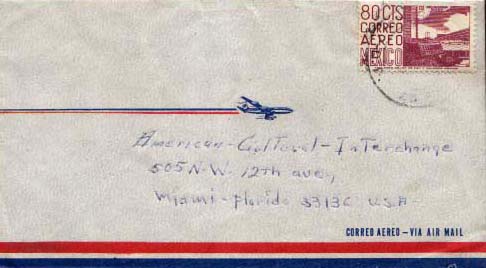 80 CTS
CORREO
AEREO
MEXICO
American-Cultural-Interchange
505 N.W. 12th ave,
Miami-florida 33136 U.S.A-
CORREO AEREO-VIA AIR MAIL